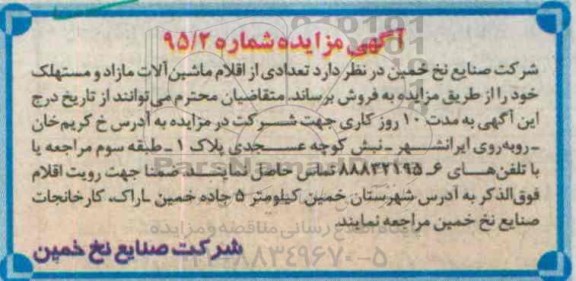 آگهی مزایده شماره ۹۵/۲
شرکت صنایع نخ خمین در نظر دارد تعدادی از اقلام ماشین آلات مازاد و مستهلک
خود را از طریق مزایده به فروش برساند. متقاضیان محترم می‌توانند از تاریخ درج
این آگهی به مدت ۱۰ روز کاری جهت شرکت در مزایده به آدرس خ کریم خان
ـ روبه‌روی ایرانشهر ـ نبش کوچه عسجدی پلاک ۱ ـ طبقه سوم مراجعه یا
با تلفن‌های ۶ـ ۸۸۸۳۲۱۹۵ تماس حاصل نمایند. ضمنا جهت رویت اقلام
فوق‌الذکر به آدرس شهرستان خمین کیلومتر ۵ جاده خمین ـ اراک، کارخانجات
صنایع نخ خمین مراجعه نمایند
شرکت صنایع نخ خمین
ParsNamad
پایگاه اطلاع رسانی مناقصه و مزایده
۸۸۳۴۹۶۷۰-۵